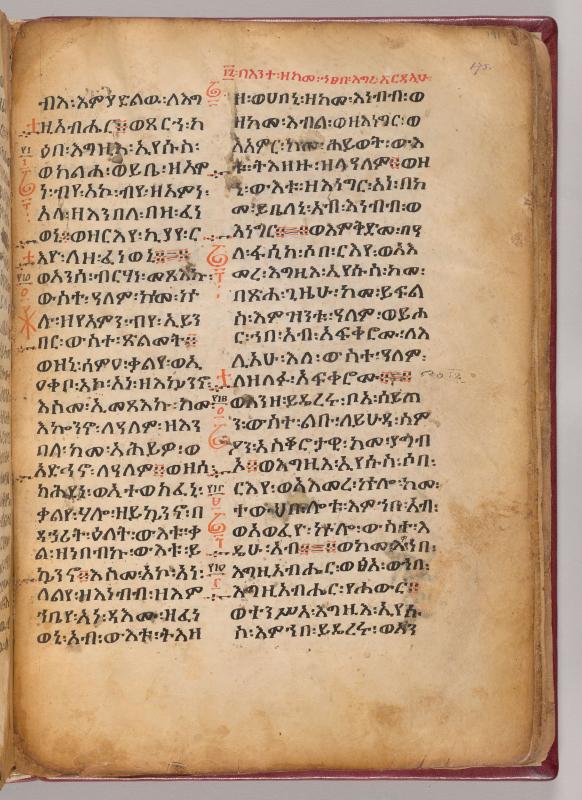 ብእ፡እምያደልዉ፡ለእግ
ዚአብሔር፨ወጸርኀ፡ከ
ዕበ፡እግዚእ፡ኢየሱስ፡
ወከልሐ፡ወይቤ፡ዘአም
ነ፡ብየ፡አኮ፡ብየ፡ዘአምነ፡
አላ፡ዘእንበለ፡በዘ፡ፈነ
ወኒ፨ወዘርእየ፡ኪያየ፡ር
እየ፡ለዘ፡ፈነወኒ፨
ወአንሰ፡ብርሃነ፡መጻእኩ፡
ውስተ፡ዓለም፡ከመ፡ኵ
ሉ፡ዘየአምን፡ብየ፡ኢይን
በር፡ውስተ፡ጽልመት፨
ወዘኒ፡ሰምዐ፡ቃልየ፡ወኢ
ዐቀቦ፡አኮ፡አነ፡ዘእኴንኖ፡
እስመ፡ኢመጻእኩ፡ከመ፡
እኰንኖ፡ለዓለም፡ዘእን
በለ፡ከመ፡አሕይዎ፡ወ
አድኅኖ፡ለዓለም፨ወዘሰ፡
ክሕደኒ፡ወኢተወክፈኒ፡
ቃልየ፡ሃሎ፡ዘይኴንኖ፡በ
ደኃሪት፡ዕለት፡ውእቱ፡ቃ
ል፡ዘነበብኩ፡ውእቱ፡ይ
ኴንኖ፨እስመ፡አኮ፡አነ፡
ለልየ፡ዘእነብብ፡ዘእም
ኀቤየ፡አነ፡ዳእሙ፡ዘፈነ
ወኒ፡አብ፡ውእቱ፡ትእዛ
፲፪፡በእንተ፡ዘከመ፡ኀፀበ፡እግረ፡አርዳኢሁ፡
ዘ፡ወሀበኒ፡ዘከመ፡እነብብ፡ወ
ዘከመ፡እብል፡ወዘእነግር፡ወ
አአምር፡ከመ፡ሕይወት፡ውእ
ቱ፡ትእዛዙ፡ዘለዓለም፨ወዘ
ኒ፡ውእቱ፡ዘእነግር፡አነ፡በከ
መ፡ይቤለኒ፡አብ፡እነብብ፡ወ
እነግር፨ወእምቅድመ፡በዓ
ለ፡ፋሲካ፡ሶበ፡ርእየ፡ወአእ
መረ፡እግዚእ፡ኢየሱስ፡ከመ፡
በጽሐ፡ጊዜሁ፡ከመ፡ይፋል
ስ፡እምዝንቱ፡ዓለም፡ወይሖ
ር፡ኀበ፡አብ፡አፍቀሮሙ፡ለእ
ሊአሁ፡እለ፡ውስተ፡ዓለም፡
ለዘለፉ፡አፍቀሮሙ፨
ወእንዘ፡ይዴረሩ፡ቦአ፡ሰይጣ
ን፡ውስተ፡ልቡ፡ለይሁዳ፡ስም
ዖን፡አስቆሮታዊ፡ከመ፡ያግብ
ኦ፨ወእግዚእ፡ኢየሱስ፡ሶበ፡
ርእየ፡ወአእመረ፡ኵሎ፡ከመ፡
ተውህበ፡ሎቱ፡እምኀበ፡አብ፡
ወአወፈየ፡ኵሎ፡ውስተ፡እ
ዴሁ፡አብ፨ወከመ፡እምኀበ፡
እግዚአብሔር፡ወፅአ፡ወኀበ፡
እግዚአብሔር፡የሐውር፨
ወተንሥአ፡እግዚእ፡ኢየሱ
ስ፡እምኀበ፡ይዴረሩ፡ወአን